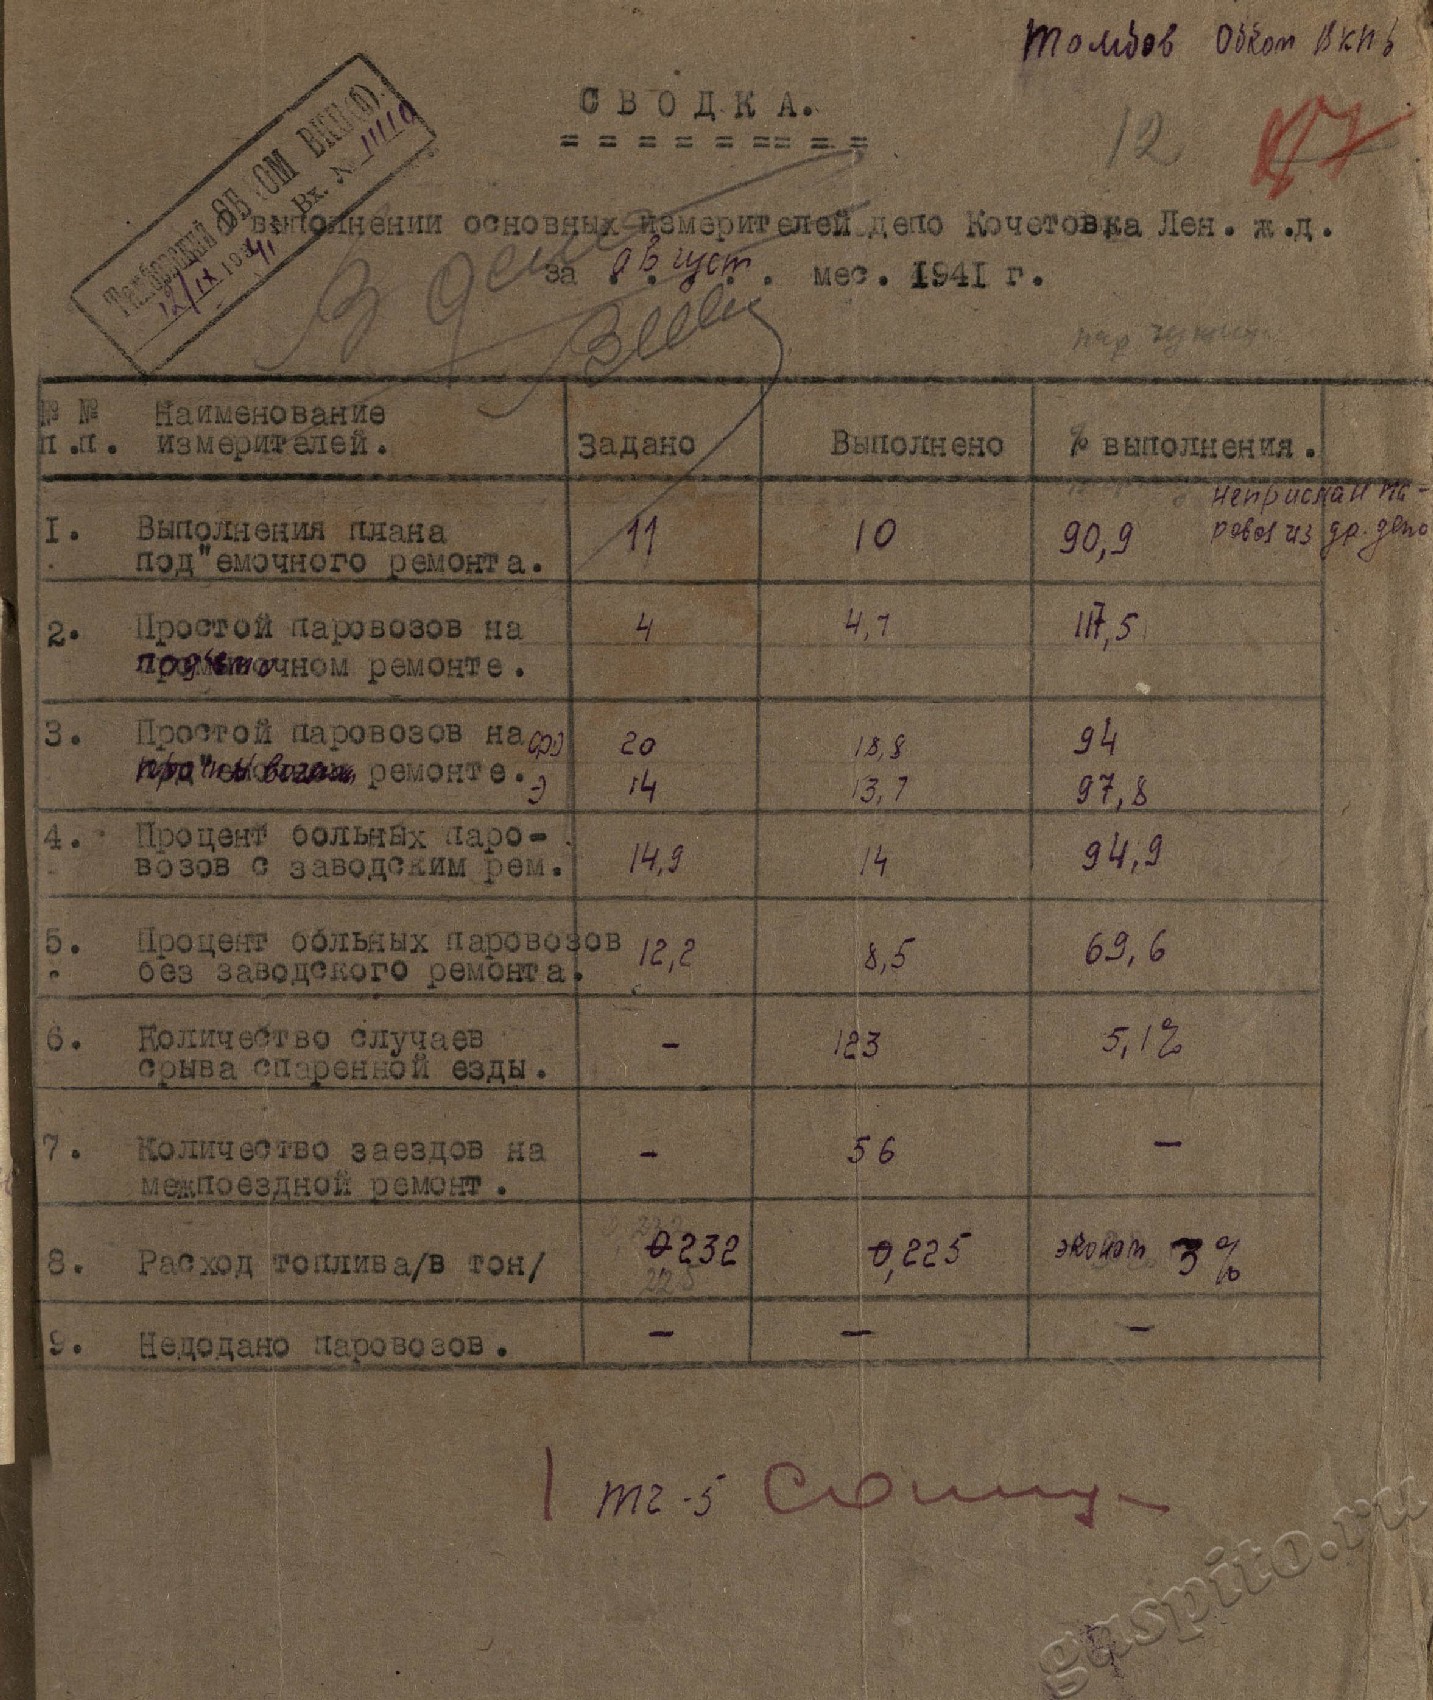 Тамбов Обком ВКПб
СВОДКА.
12
Тамбовский ОБКОМ ВКП(б).
Вх. № 11110
12/IX 1941
О выполнении основных измерителей депо Кочетовка Лен. ж.д.
за август мес. 1941 г.
В дело
№ № Наименование
п.п. измерителей. Задано Выполнено % выполнения.
1. Выполнения плана
под"емочного ремонта. 11 10 90,9 неприслан па-
ровоз из др. депо
2. Простой паровозов на 4 4,7 117,5
подъемочном ремонте.
3. Простой паровозов на ФД 20 18,8 94
ремонте. Э 14 13,7 97,8
4. Процент больных паро-
возов с заводским рем. 14,9 14 94,9
5. Процент больных паровозов 12,2 8,5 69,6
без заводского ремонта.
6. Количество случаев - 123 5,1%
срыва спаренной езды.
7. Количество заездов на - 56 -
межпоездной ремонт.
8. Расход топлива/в тон/ 0232 0,225 эконом 3%
225
9. Недодано паровозов. - - -
ТЧ-5
gaspito.ru